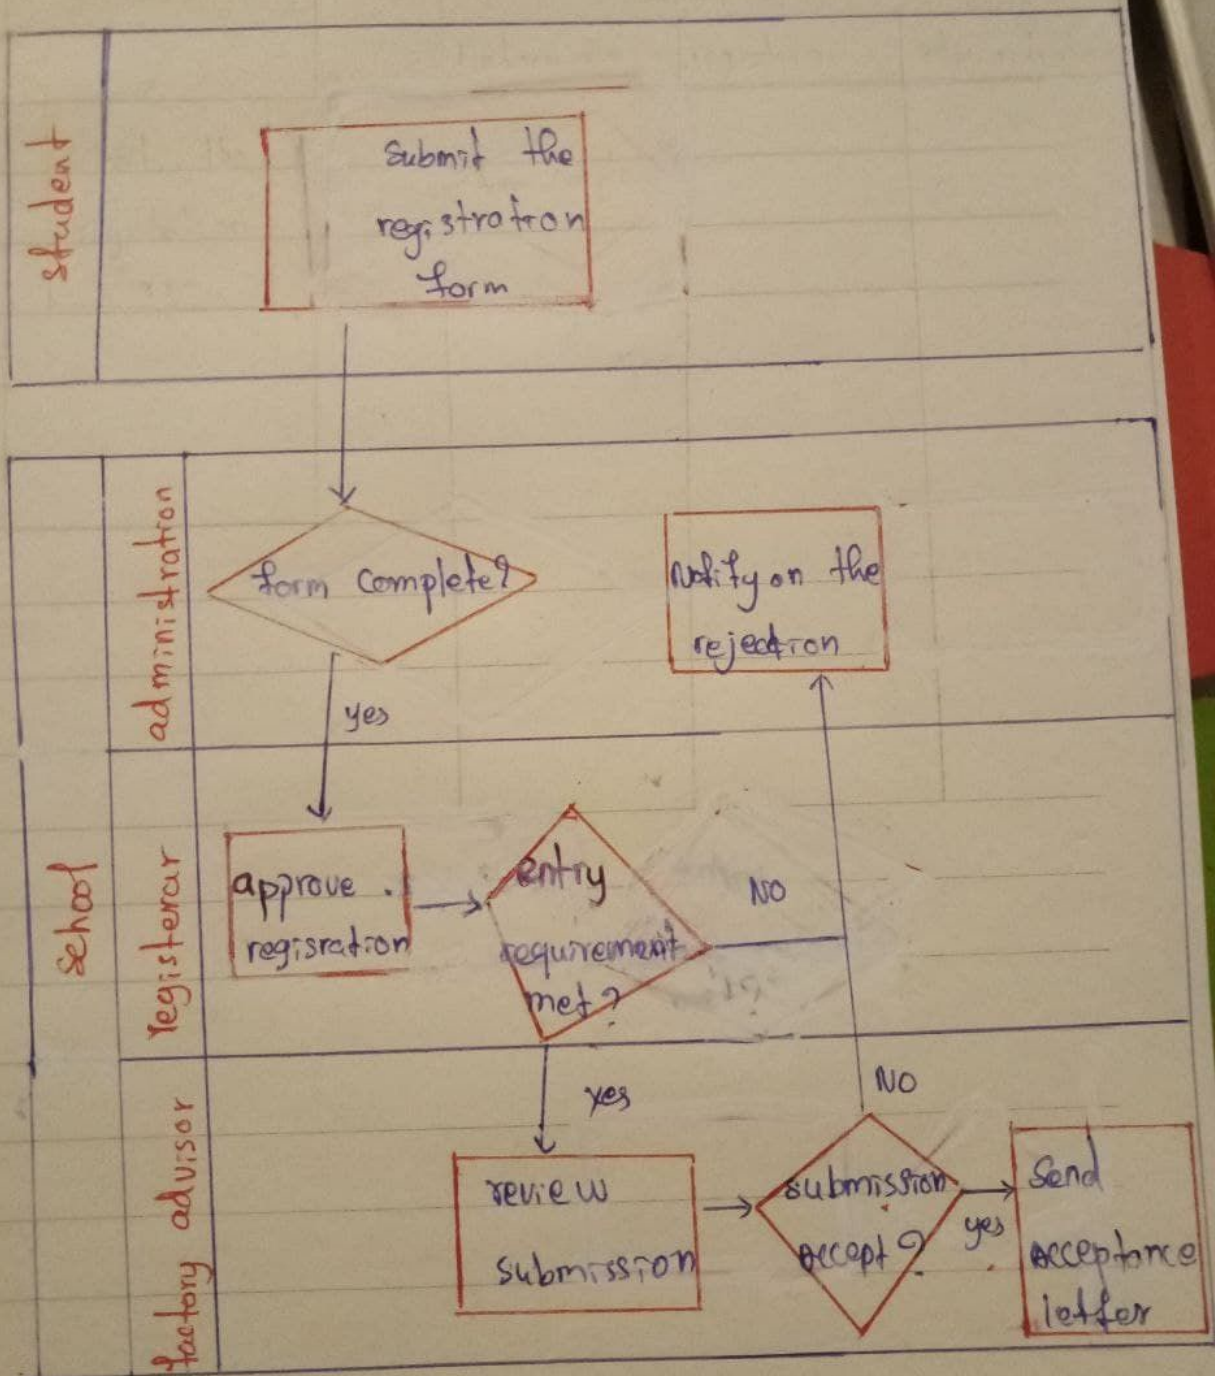 student
Submit the
registration
form
School
administration
form complete?
Notify on the
rejection
yes
registerar
approve
regisration
entry
requirement
met?
NO
factory advisor
yes
NO
review
submission
submission
accept?
yes
Send
acceptance
letter